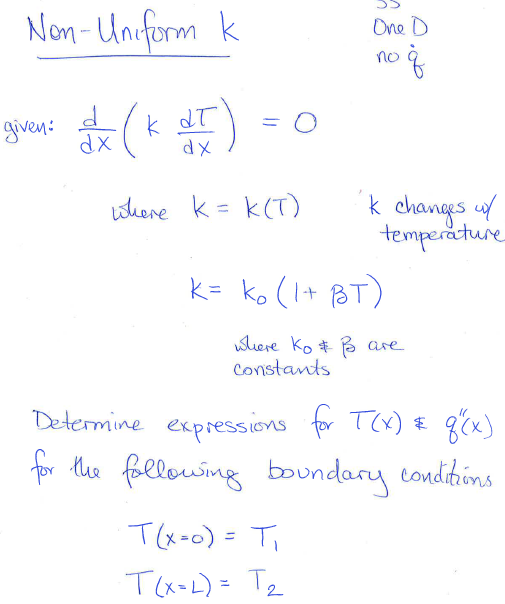 SS
Non-Uniform k
One D
no q̇
given: d/dx ( k dT/dx ) = 0
where k = k(T)
k changes w/
temperature
k = k₀ (1 + βT)
where k₀ & β are
constants
Determine expressions for T(x) & q"(x)
for the following boundary conditions
T(x=0) = T₁
T(x=L) = T₂